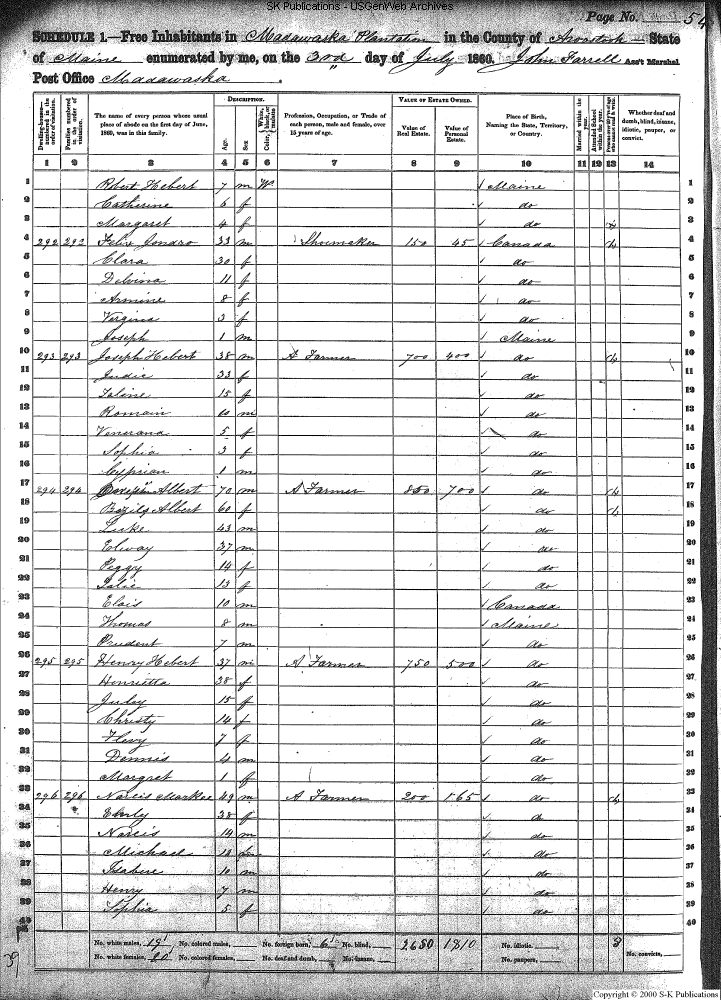 SK Publications - USGenWeb Archives
Page No. 54
SCHEDULE 1.—Free Inhabitants in Madawaska Plantation in the County of Aroostook State
of Maine enumerated by me, on the 3rd day of July 1860. John Farrell Ass't Marshal
Post Office Madawaska.
Dwelling-houses—numbered in the order of visitation. Families numbered in the order of visitation. The name of every person whose usual place of abode on the first day of June, 1860, was in this family. DESCRIPTION. Age. Sex. Color, White, black, or mulatto. Profession, Occupation, or Trade of each person, male and female, over 15 years of age. VALUE OF ESTATE OWNED. Value of Real Estate. Value of Personal Estate. Place of Birth, Naming the State, Territory, or Country. Married within the year. Attended School within the year. Whether deaf and dumb, blind, insane, idiotic, pauper, or convict.
1 2 3 4 5 6 7 8 9 10 11 12 13 14
1 Robert Hebert 7 m W Maine 1
2 Catherine 6 f do 2
3 Margaret 4 f do 3
4 292 292 Felix Jondro 33 m Shumaker 150 45 Canada 4
5 Clara 30 f do 5
6 Delvina 11 f do 6
7 Armine 8 f do 7
8 Vergina 3 f do 8
9 Joseph 1 m Maine 9
10 293 293 Joseph Hebert 38 m A Farmer 700 400 do 10
11 Judie 33 f do 11
12 15 f do 12
13 Romain 10 m do 13
14 Venerana 5 f do 14
15 Sophia 3 f do 15
16 Cyprian 1 m do 16
17 294 294 Albert 70 m A Farmer 850 700 do 17
18 Albert 60 f do 18
19 Luke 43 m do 19
20 Elway 37 m do 20
21 Peggy 14 f do 21
22 13 f do 22
23 Elois 10 m Canada 23
24 Thomas 8 m Maine 24
25 Prudent 7 m do 25
26 295 295 Henry Hebert 37 m A Farmer 750 500 do 26
27 Henrietta 38 f do 27
28 Judey 15 f do 28
29 Christy 14 f do 29
30 Flevy 7 f do 30
31 Dennis 4 m do 31
32 Margret 1 f do 32
33 296 296 Narcis Markee 49 m A Farmer 200 165 do 33
34 Emly 38 f do 34
35 Narcis 14 m do 35
36 Michael do 36
37 10 m do 37
38 Henry 7 m do 38
39 Sophia 5 f do 39
40 40
No. white males, 19 No. colored males, No. foreign born, 6 No. blind, 2680 1810 No. idiotic,
No. white females, 20 No. colored females, No. deaf and dumb, No. insane, No. paupers, No. convicts,
39
Copyright © 2000 S-K Publications